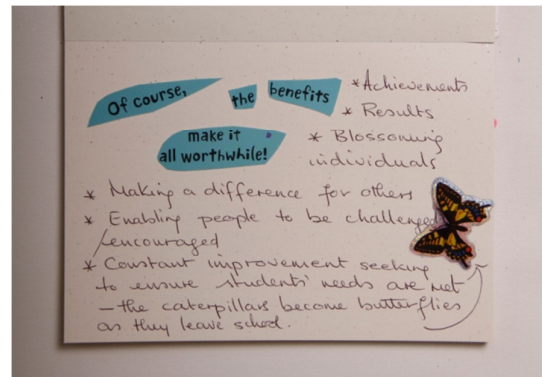 Of course, the benefits
make it
all worthwhile!
* Achievements
* Results
* Blossoming
individuals
* Making a difference for others
* Enabling people to be challenged
/encouraged
* Constant improvement seeking
to ensure students' needs are met
– the caterpillars become butterflies
as they leave school.